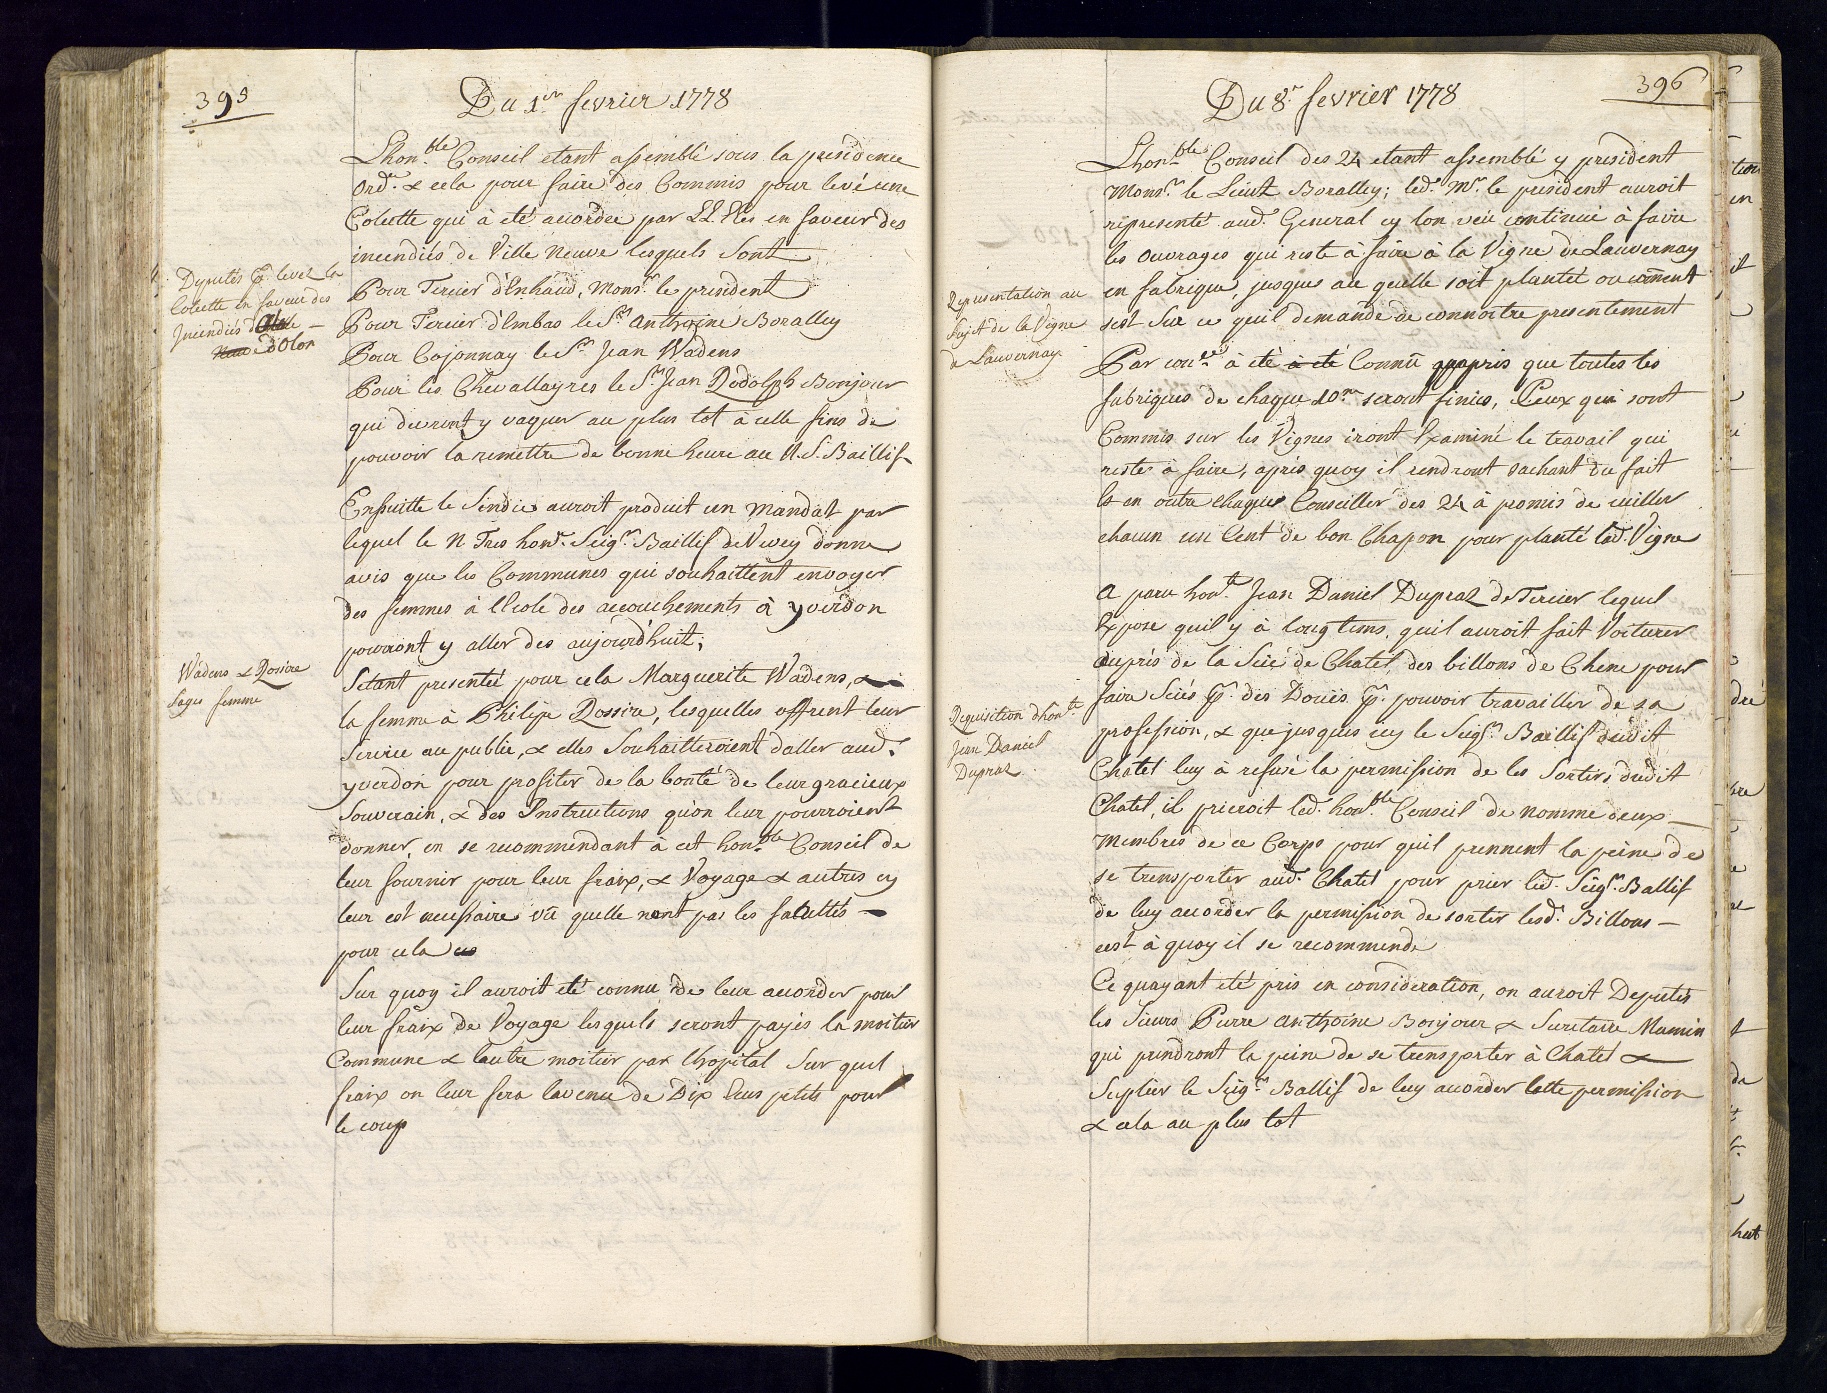 395
Du 1er fevrier 1778
Lhonble Conseil etant assemblé sous la presidence
Ordre & cela pour faire des Commis pour levé une
Colette qui à été accordée par LL EEes en faveur des
incendiés de Ville Neuve lesquels sont
Deputés pr lever la
Colette en faveur des
Incendiés d
d'Olon
Pour Tercier d'Enhaud, Monsr le president
Pour Tercier d'Embas le Sr Anthoine Boralley
Pour Cojonnay le Sr Jean Wadens
Pour les Chevallayres le Sr Jean Rodolph Bonjour
qui devront y vaquer au plus tot à celle fins de
pouvoir la remettre de bonne heure au N. S. Baillif
Ensuitte le Sindic auroit produit un Mandat par
lequel le N Tres honr. Seigr. Baillif de Vevey donne
avis que les Communes qui souhaittent envoyer
des femmes à lEcole des accouchements à yverdon
pourront y aller des aujourd'huit;
Wadens & Rossire
Sages femme
Setant presenteé pour cela Marguerite Wadens, &
la femme à Philipe Rossire, lesquelles offrent leur
Service au public, & elles Souhaitteroient daller aud.
yverdon pour profiter de la bonté de leur gracieux
Souverain, & des Instructions qu'on leur pourroient
donner en se recommendant à cet honble Conseil de
leur fournir pour leur fraix, & Voyage & autres cy
leur est necessaire vû quelle nont pas les facultés
pour cela
Sur quoy il auroit eté connu de leur accorder pour
leur fraix de Voyage lesquels seront payés la moitier
Commune & lautre moitier par lhopital Sur quel
fraix on leur fera lavence de Dix Ecus petits pour
le coup
396
Du 8e fevrier 1778
Lhonble Conseil des 24 etant assemblé y president
Monsr le Lieut Boralley; led. Mr. le president auroit
representé aud. General cy lon veù continué à faire
les ouvrages qui reste à faire à la Vigne de Lauvernay
en fabrique, jusques ace quelle soit plantée ou comment
sest Sur ce quil demande de connoitre presentement
Representation au
Sujet de la Vigne
de Lauvernay
Par à eté à eté Connû quapris que toutes les
fabriques de chaque 10ne seront finies, Ceux qui sont
Commis sur les Vignes iront Examiné le travail qui
reste à faire, aprés quoy il rendront sachant du fait
Et en outre chaque Conseiller des 24 à promis de cuiller
chacun un Cent de bon Chapon pour planté led. Vigne
A paru honte. Jean Daniel Dupraz de Tercier lequel
Expose quil y à longtems, quil auroit fait Voiturer
auprés de la Sciè de Chatel, des billons de Chene pour
faire Sciés pr. des Doüés pr. pouvoir travailler de sa
profession, & que jusques icy le Seigr. Baillif dudit
Chatel luy à refusé la permission de les Sortir, dudit
Chatel, il prieroit led. honble Conseil de nomme deux
Membres de ce Corps pour quil prennent la peine de
se transporter aud. Chatel pour prier led. Seigr. Ballif
de luy accorder la permission de sortir lesd. Billons
cest à quoy il se recommende
Requisition dhonte.
Jean Daniel
Dupraz
Ce quayant eté pris en consideration, on auroit Deputés
les Sieurs Pierre Anthoine Bonjour & Secretaire Mamin
qui prendront la peine de se transporter à Chatel &
Suplier le Seigr Ballif de luy accorder Cette permission
& cela au plus tot